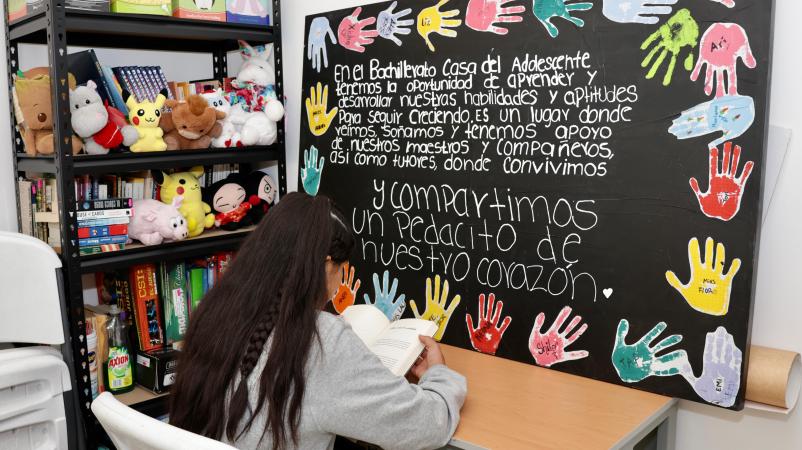 En el Bachillerato Casa del Adolescente
tenemos la oportunidad de aprender y
desarrollar nuestras habilidades y aptitudes
Para seguir creciendo. ES un lugar donde
reímos, soñamos y tenemos apoyo
de nuestros maestros y compañeros,
así como tutores, donde convivimos
y compartimos
un pedacito de
nuestro corazón
Ari
EMI
CSI:
AXION